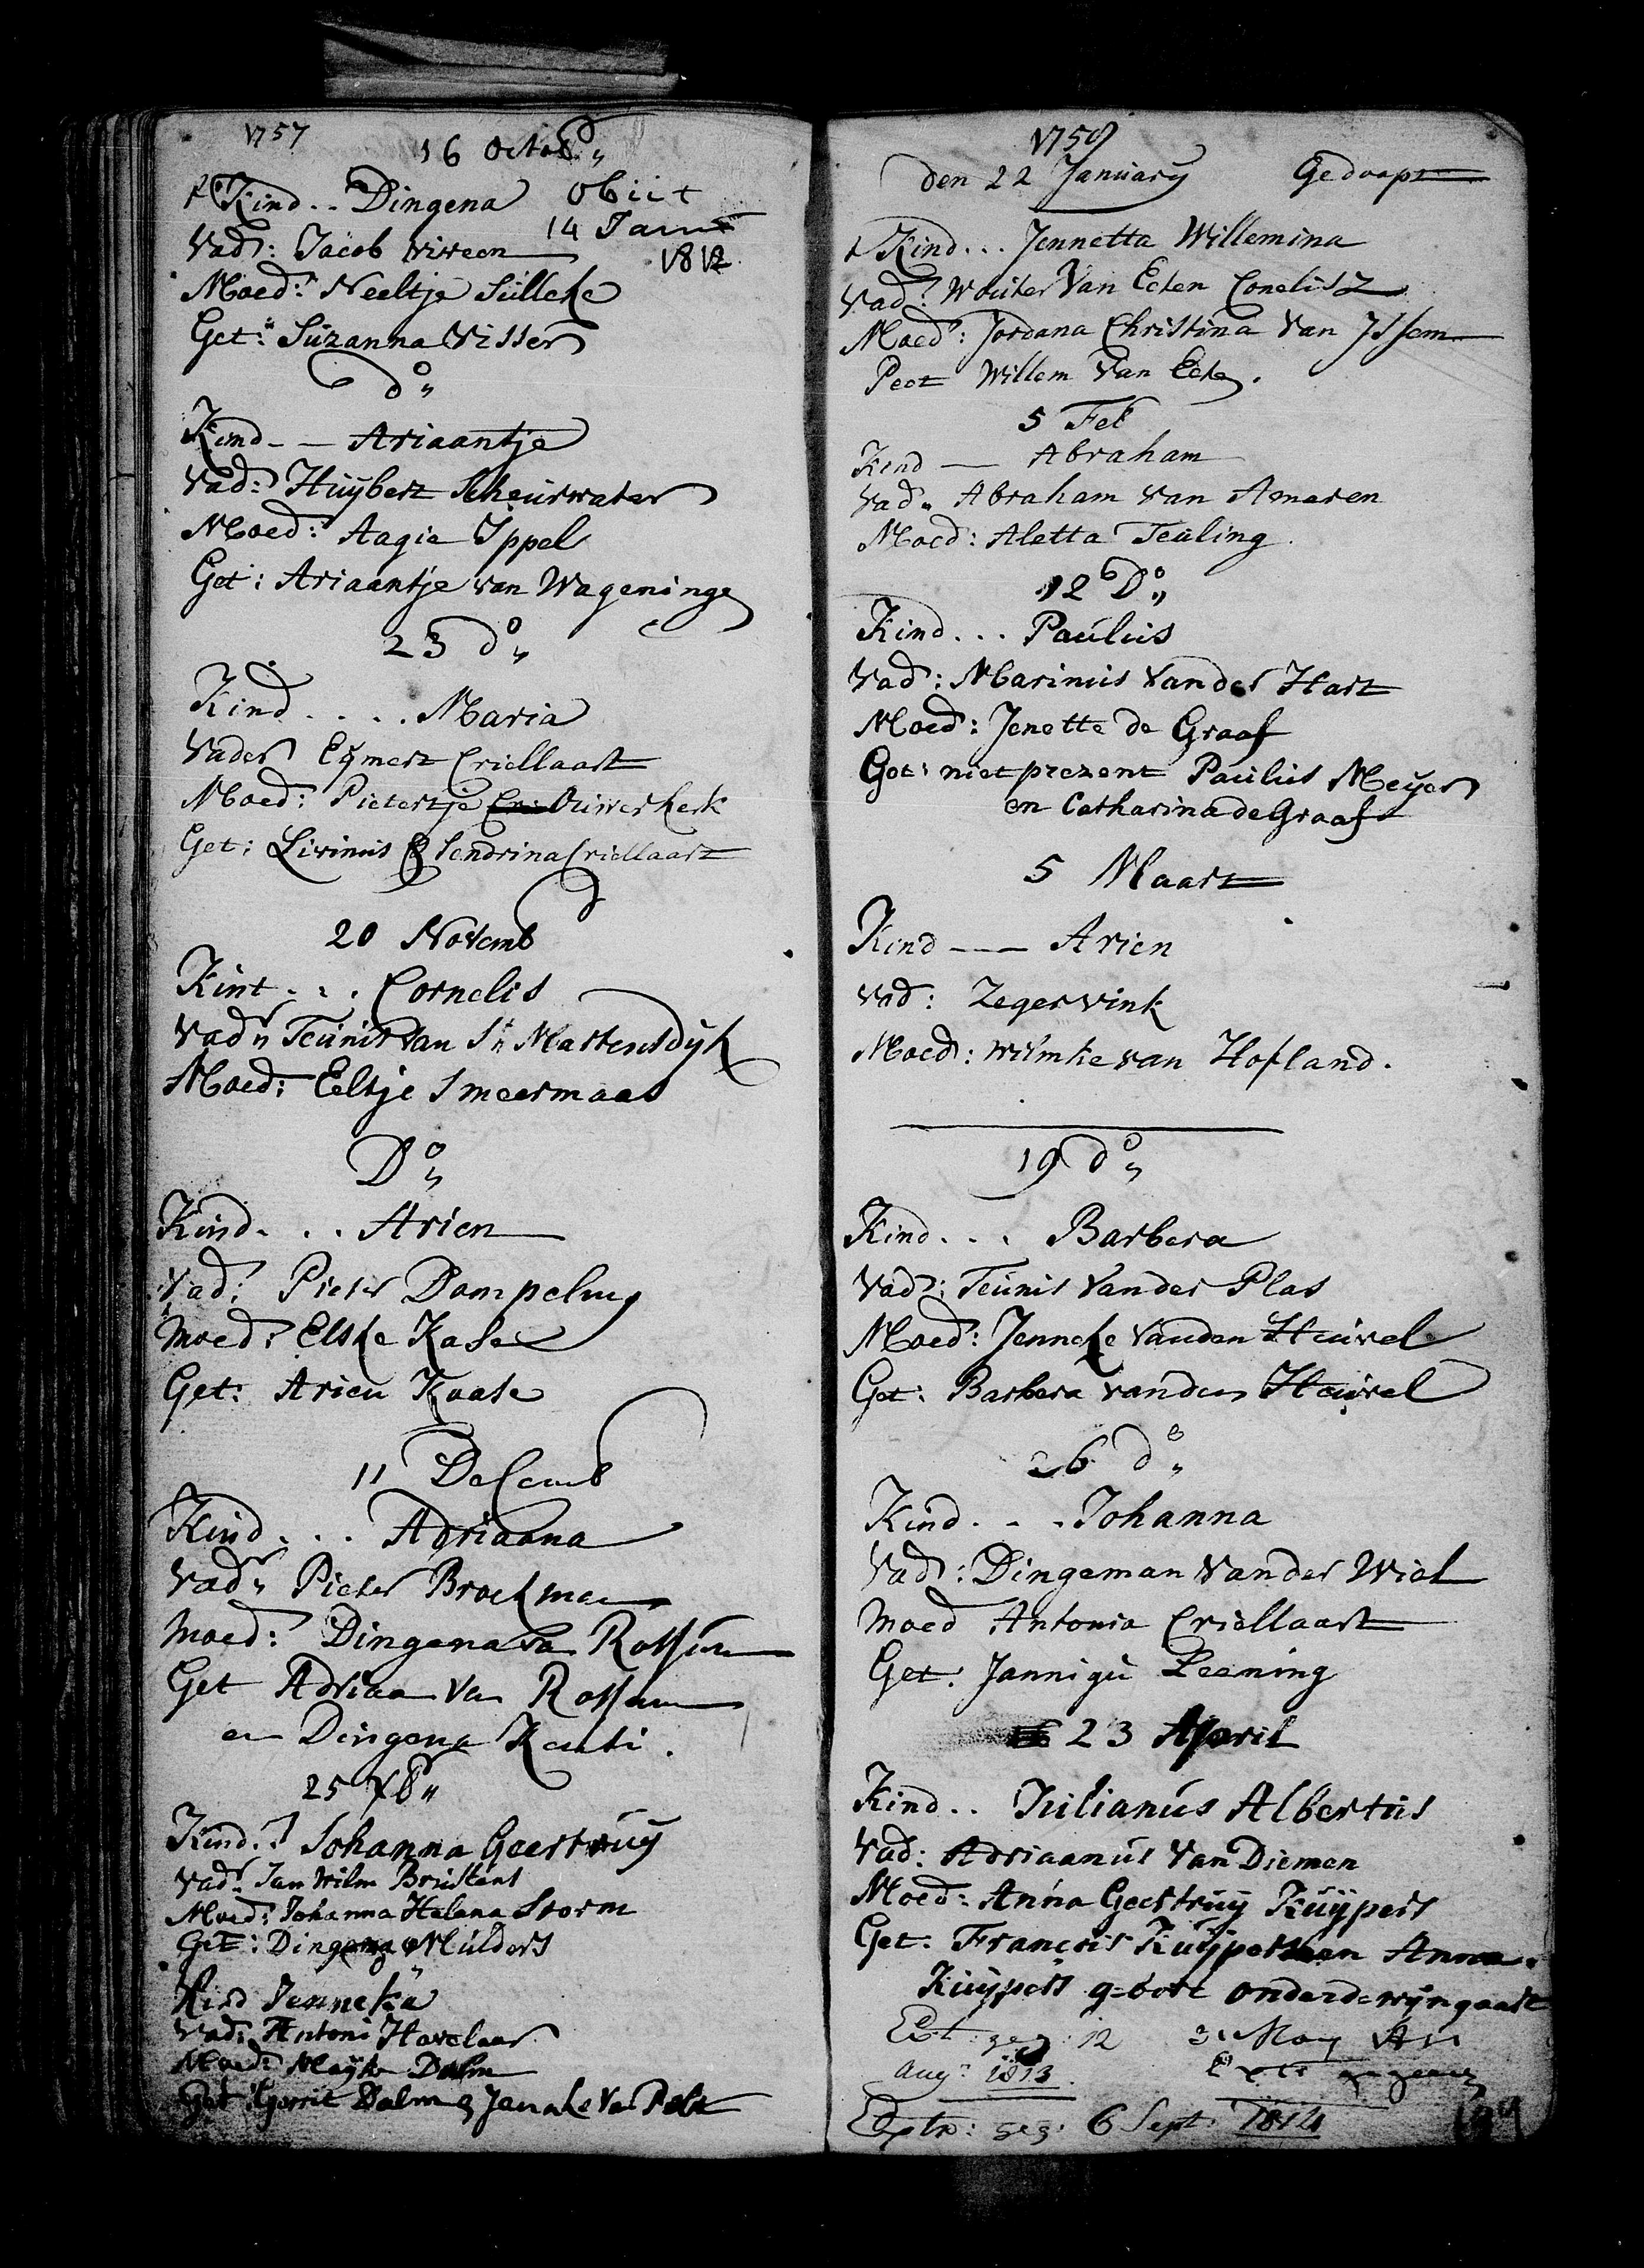 1757
16 Octob
Kind .. Dingena Obiit
14 Janu
1812
Vad: Jacob Viveen
Moed: Neeltje Sülleke
Get: Süzanna Visser
do
Kind - - Ariaantje
Vad: Huybert Scheurwater
Moed: Aagie Ippel
Get: Ariaantje van Wageninge
23 do
Kind .... Maria
Vader Eymert Criellaart
Moed: Pietertje Ouwerkerk
Get: Livinus & Hendrina Criellaart
20 Novemb
Kint ... Cornelis
Vadr Teunis van St Martensdyk
Moed: Eeltje Smeermaas
Do
Kind ... Arien
Vad: Pieter Dompeling
Moed: Elske Kase
Get: Arien Kaase
11 Desemb
Kind ... Adriaana
Vadr Pieter Broekman
Moed: Dingena va Rossum
Get Adriaa Van Rossum
en Dingena
25 Xb
Kind: Johanna Geertruy
Vadr Jan Wilm
Moed: Johanna Helena Storm
Get: Dingena Mulders
Kind Jenneka
Vad: Antoni Havelaar
Moed: Mayke Dalm
Get: Gerrit Dalm & Janneke Va Pelt
1758
den 22 January Gedoopt
Kind ... Jennetta Willemina
Vad: Wouter Van Eeten Conelisz
Moed: Jordana Christina Van Issem
Peet Willem Van Eete.
5 Feb
Kind — Abraham
Vad. Abraham van Ameren
Moed: Aletta Teuling.
12 Do
Kind ... Paulus
Vad: Marinus Vander Hart
Moed: Jenette de Graaf
Get: niet prezent Paulus Meyer
en Catharina de Graaf
5 Maart
Kind — Arien
Vad: Zeger Vink
Moed: Wilmke van Hofland.
19 do
Kind ... Barbera
Vad: Teunis Vander Plas
Moed: Jenneke Vanden Heuvel
Get: Barbera vanden Heuvel
26 do
Kind ... Johanna
Vad: Dingeman Vander Wiel
Moed Antonia Criellaart
Get. Jannigie Leening
23 April
Kind .. Julianus Albertus
Vad: Adriaanus Van Diemen
Moed: Anna Geertruy Kuypers
Get: Francois Kuypers en Anna
Kuypers gebore onderdewyngaart
Ext: geg: 12
Aug: 1813.
3 May
Extr: geg: 6 Sept: 1814
199